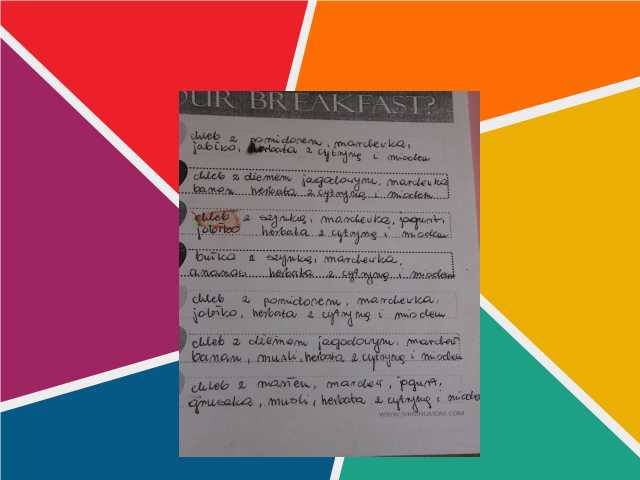 OUR BREAKFAST?
chleb z pomidorem, marchewka,
jabłko, herbata z cytryną i miodem
chleb z dżemem jagodowym, marchewka
banan herbata z cytryną i miodem
chleb z szynką, marchewka, jogurt,
jabłko herbata z cytryną i miodem
bułka z szynką, marchewka,
ananas herbata z cytryną i miodem
chleb z pomidorem, marchewka,
jabłko, herbata z cytryną i miodem
chleb z dżemem jagodowym, marchew
banan, musli, herbata z cytryną i miodem
chleb z masłem, marchew, jogurt,
gruszka, musli, herbata z cytryną i miode